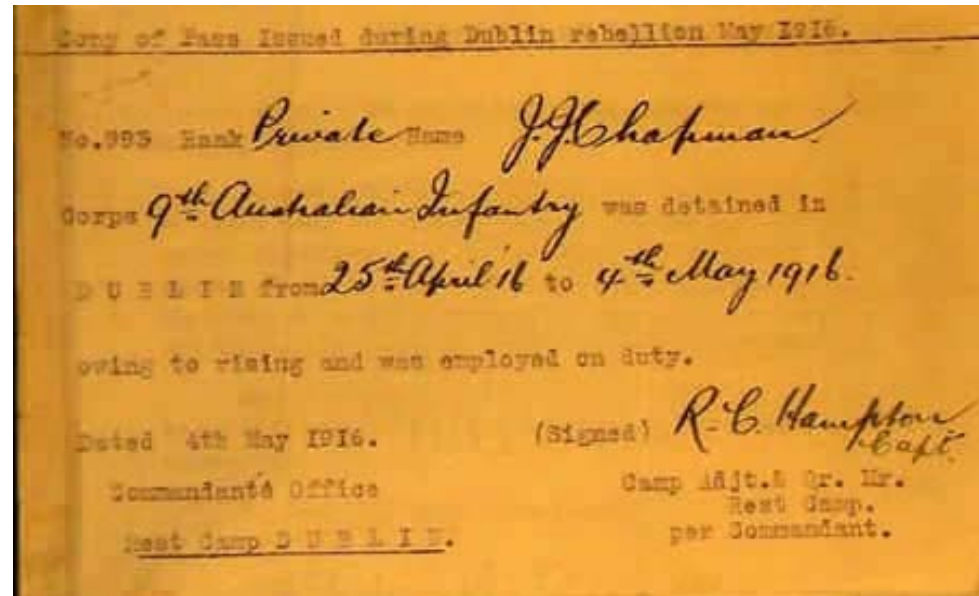 Copy of Pass Issued during Dublin rebellion May 1916.
No.993 Rank Private Name J.J. Chapman.
Corps 9th Australian Infantry was detained in
D U B L I N from 25th April 16 to 4th May 1916.
owing to rising and was employed on duty.
Dated 4th May 1916. (Signed) R. C. Hampton
Capt.
Commandants Office Camp Adjt.& Qr. Mr.
Rest Camp.
Rest Camp D U B L I N. per Commandant.